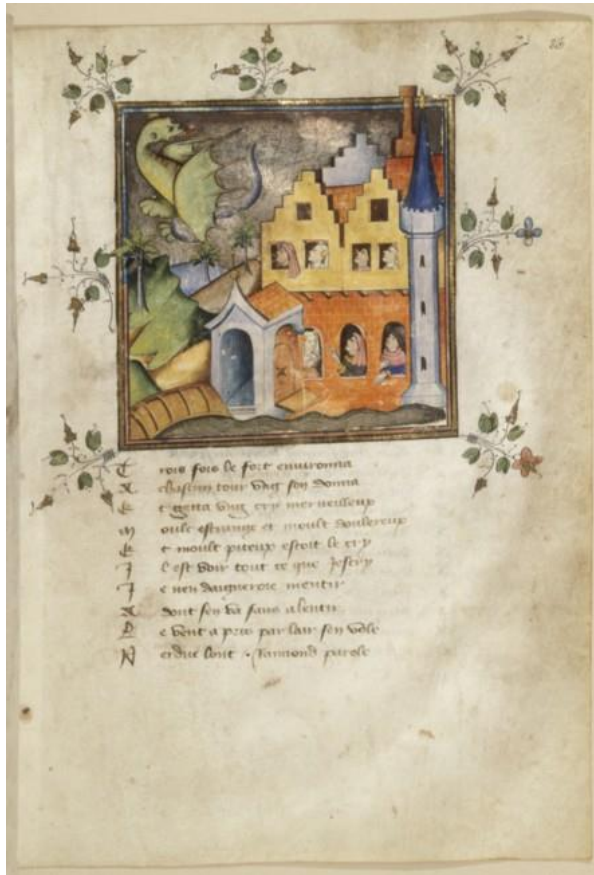 26
T rois fois le fort environna
A chascun tour ung son donna
E t getta ung cry merveilleux
M oult estrange et moult doulereux
E t moult piteux estoit le cry
I l est voir tout ce que Jescry
J e nen daigneroie mentir
A dont sen va sans alentir
L e vent a pris par lair sen vole
N erdue lont Raimond parole